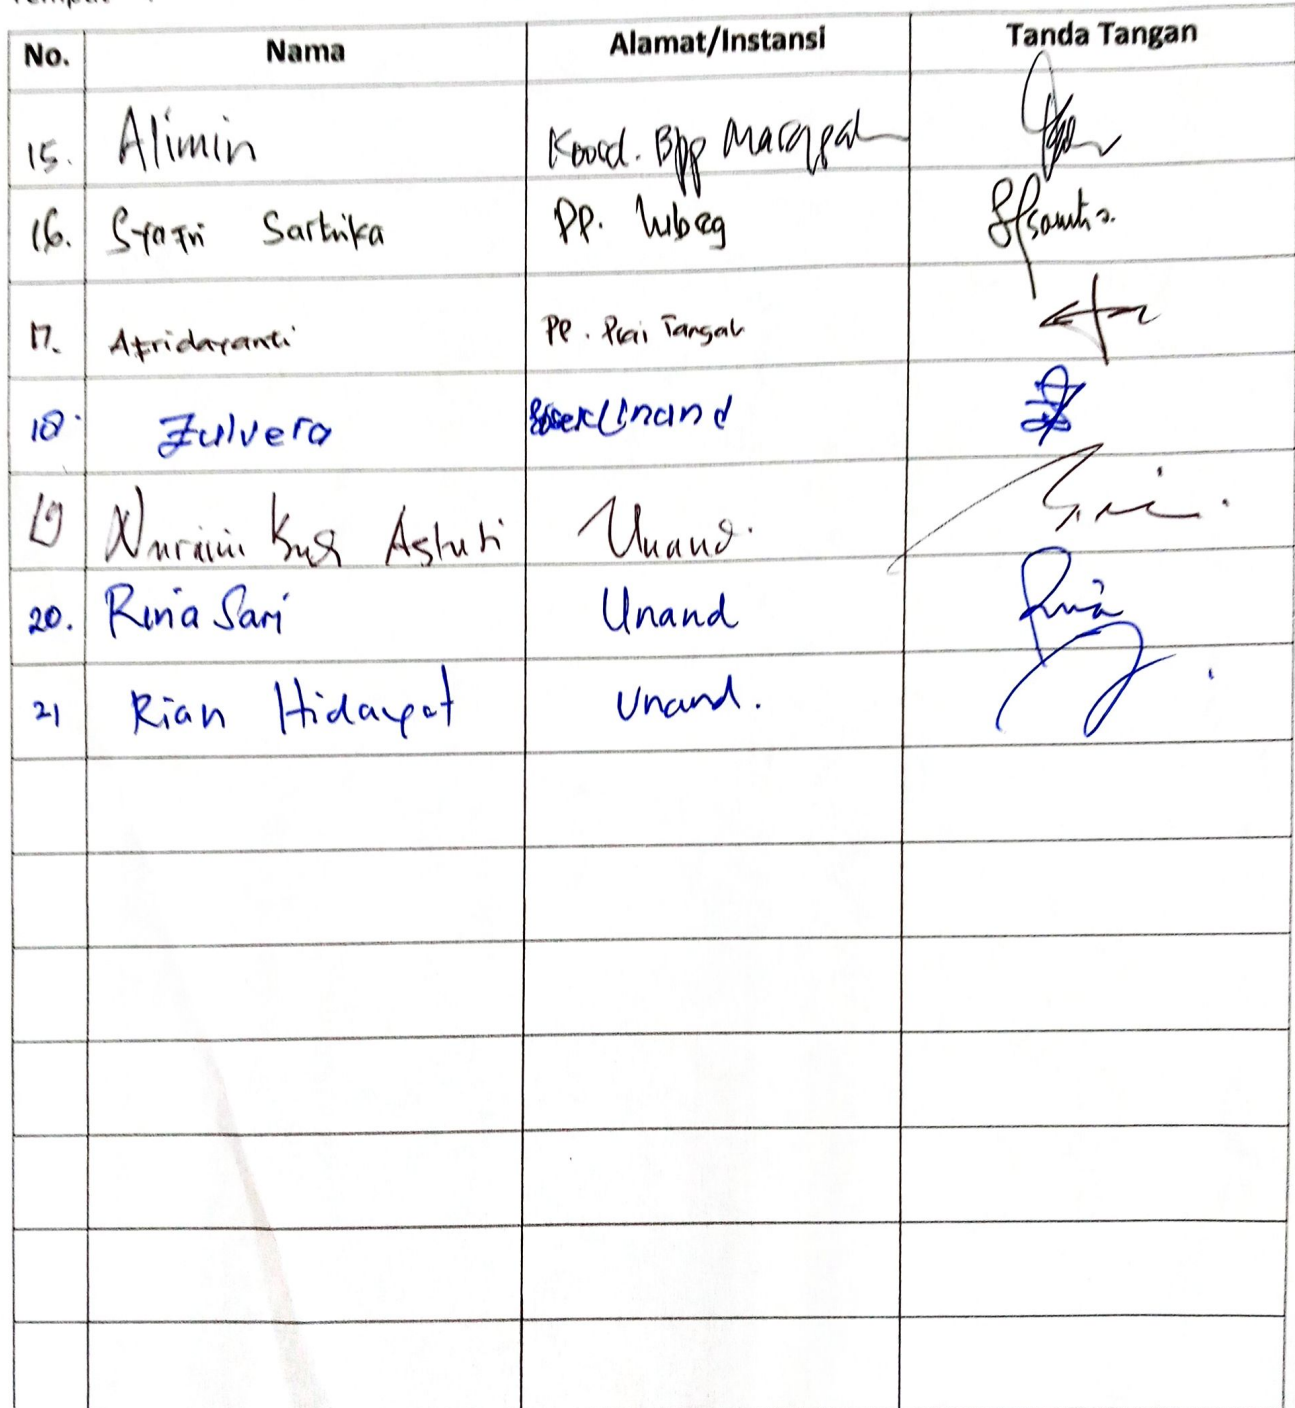 No. Nama Alamat/Instansi Tanda Tangan
15. Alimin Koord. Bpp Marapalam
16. Syafri Sartrika PP. Lubeg
17. Afridayanti PP. Piai Tangah
18. Zulvera Unand
19 Nuraini Budi Astuti Unand.
20. Rina Sari Unand
21 Rian Hidayat Unand.